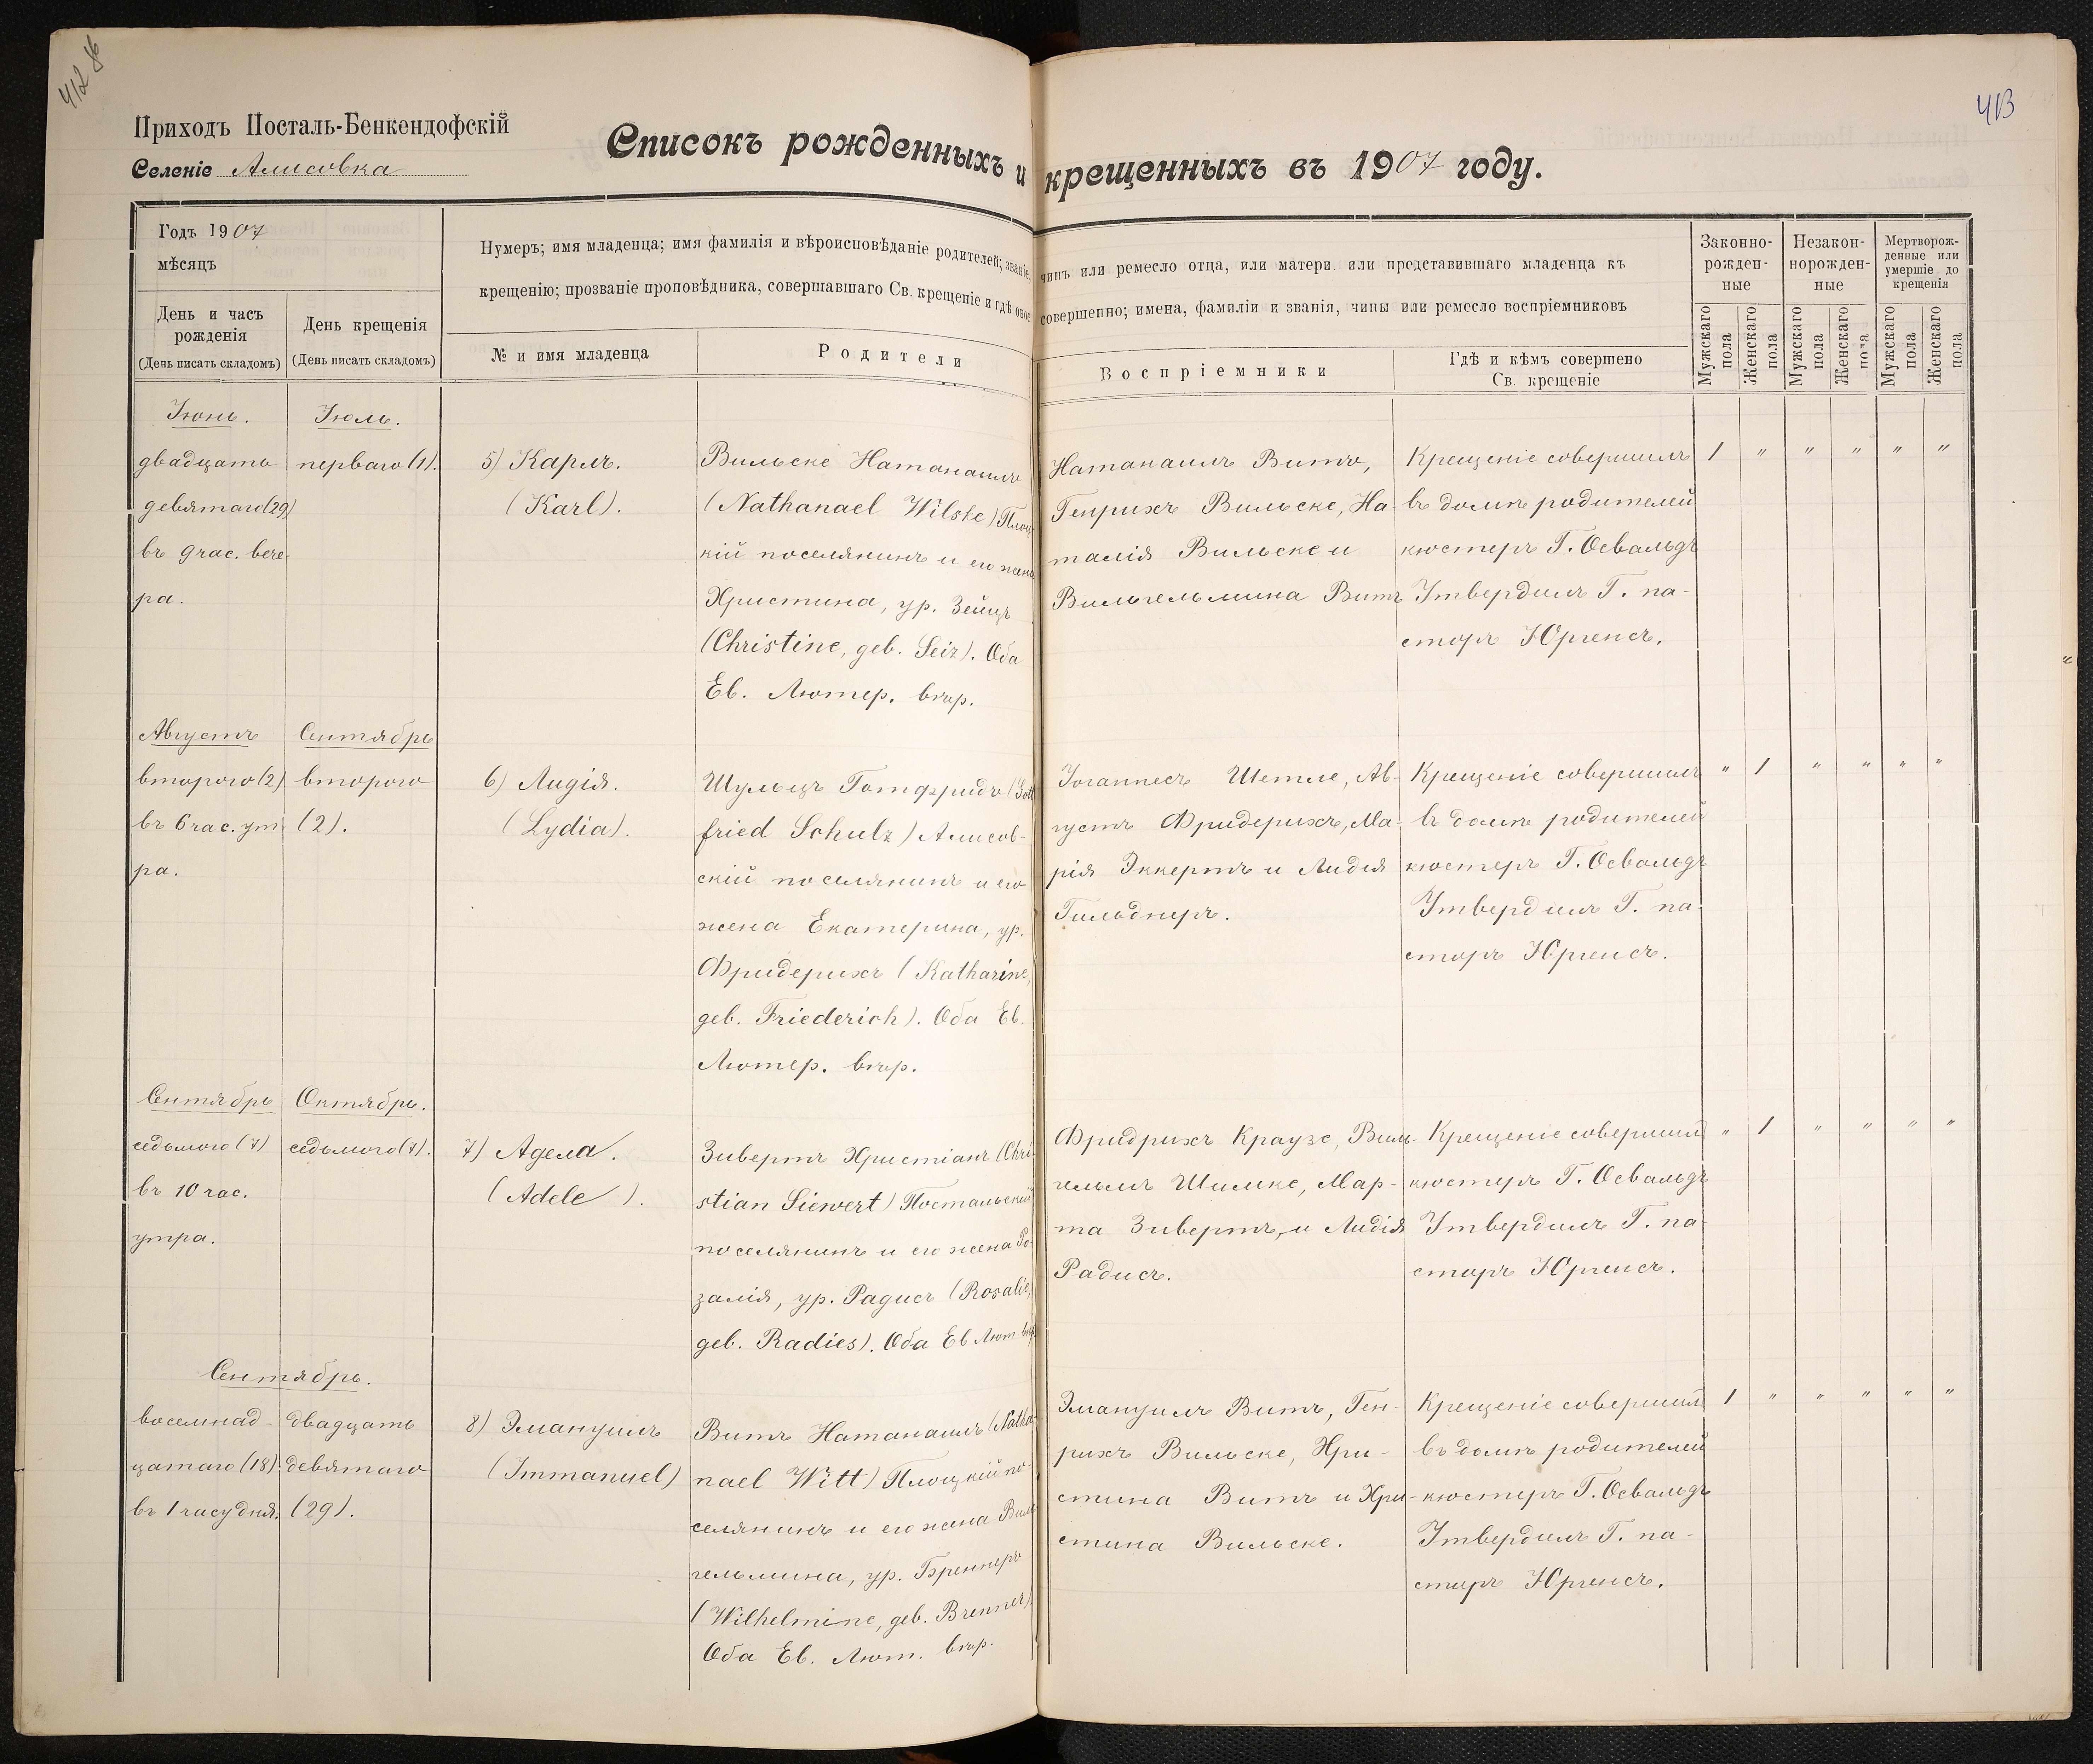 412 об
413
Приходъ Посталь-Бенкендофскій
Селеніе Алисовка
Списокъ рожденныхъ и крещенныхъ въ 1907 году.
Годъ 1907
мѣсяцъ
День и часъ
рожденія
(День писать складомъ)
День крещенія
(День писать складомъ)
Нумеръ; имя младенца; имя фамилія и вѣроисповѣданіе родителей; званіе, чинъ или ремесло отца, или матери или представившаго младенца къ
крещенію; прозваніе проповѣдника, совершавшаго Св. крещеніе и гдѣ оное совершенно; имена, фамиліи и званія, чины или ремесло воспріемниковъ
№ и имя младенца
Родители
Воспріемники
Гдѣ и кѣмъ совершено
Св. крещеніе
Законно-
рожден-
ные
Незакон-
норожден-
ные
Мертворож-
денные или
умершіе до
крещенія
Мужскаго
пола
Женскаго
пола
Мужскаго
пола
Женскаго
пола
Мужскаго
пола
Женскаго
пола
Іюнь.
двадцать
девятаго (29)
въ 9 час. вече-
ра.
Іюль.
перваго (1).
5) Карлъ.
(Karl).
Вильске Натанаилъ
(Nathanael Wilske) Плоц-
кій поселянинъ и его жена
Христина, ур. Зейцъ
(Christine, geb. Seiz). Оба
Ев. Лютер. вѣр.
Натанаилъ Витъ,
Генрихъ Вильске, На-
талія Вильске и
Вильгельмина Витъ
Крещеніе совершилъ
въ домѣ родителей
кюстеръ Г. Освальдъ
Утвердилъ Г. па-
сторъ Юргенсъ.
1 " " " " "
Августъ
второго (2)
въ 6 час. ут-
ра.
Сентябрь
второго
(2).
6) Лидія.
(Lydia).
Шульцъ Готфридъ (Gott
fried Schulz) Алисов-
скій поселянинъ и его
жена Екатерина, ур.
Фридерихъ (Katharine,
geb. Friederich). Оба Ев.
Лютер. вѣр.
Іоганнесъ Шетле, Ав-
густъ Фридерихъ, Ма-
рія Эккертъ и Лидія
Гильднеръ.
Крещеніе совершилъ
въ домѣ родителей
кюстеръ Г. Освальдъ
Утвердилъ Г. па-
сторъ Юргенсъ.
" 1 " " " "
Сентябрь
седьмого (7)
въ 10 час.
утра.
Октябрь.
седьмого (7).
7) Адела.
(Adele).
Зивертъ Христіанъ (Chri-
stian Siewert) Постальскій
поселянинъ и его жена Ро-
залія, ур. Радисъ (Rosalie,
geb. Radies). Оба Ев Лют. вѣр.
Фридрихъ Краузе, Виль-
гельмъ Шимке, Мар-
та Зивертъ, и Лидія
Радисъ.
Крещеніе совершилъ
кюстеръ Г. Освальдъ
Утвердилъ Г. па
сторъ Юргенсъ.
" 1 " " " "
Сентябрь.
восемнад-
цатаго (18)
въ 1 часу дня.
двадцать
девятаго
(29).
8) Эмануилъ
(Immanuel)
Витъ Натанаилъ (Natha-
nael Witt) Плоцкій по-
селянинъ и его жена Виль
гельмина, ур. Бреннеръ
(Wilhelmine, geb. Brenner)
Оба Ев. Лют. вѣр.
Эмануилъ Витъ, Ген-
рихъ Вильске, Хри-
стина Витъ и Хри-
стина Вильске.
Крещеніе совершилъ
въ домѣ родителей
кюстеръ Г. Освальдъ
Утвердилъ Г. па-
сторъ Юргенсъ.
1 " " " " "